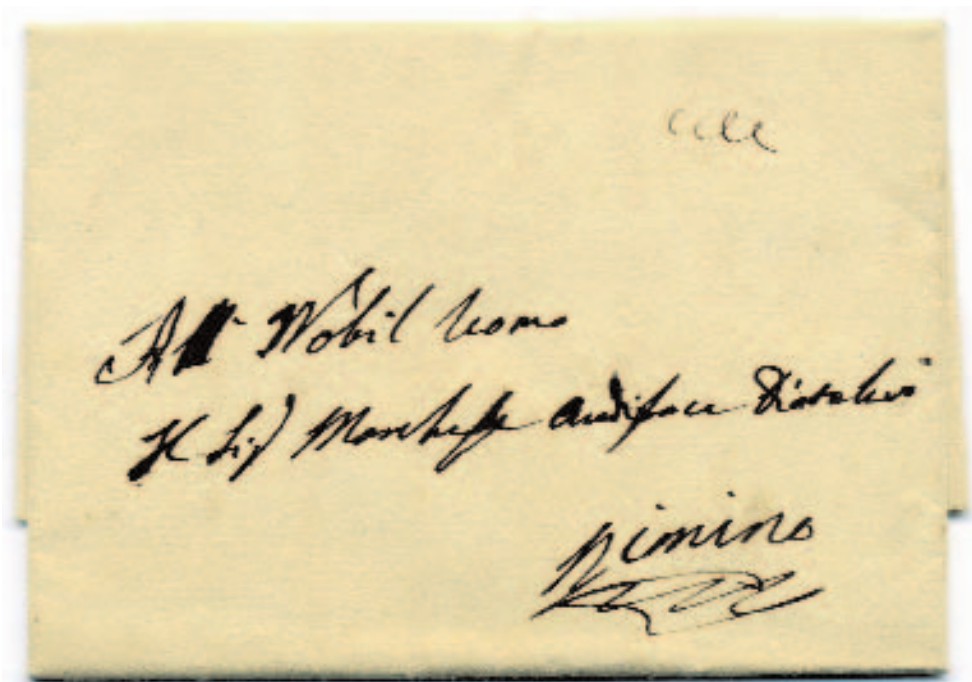 Al Nobil Uomo
Il Sig. Marchese Audiface Diotalevi
Rimino